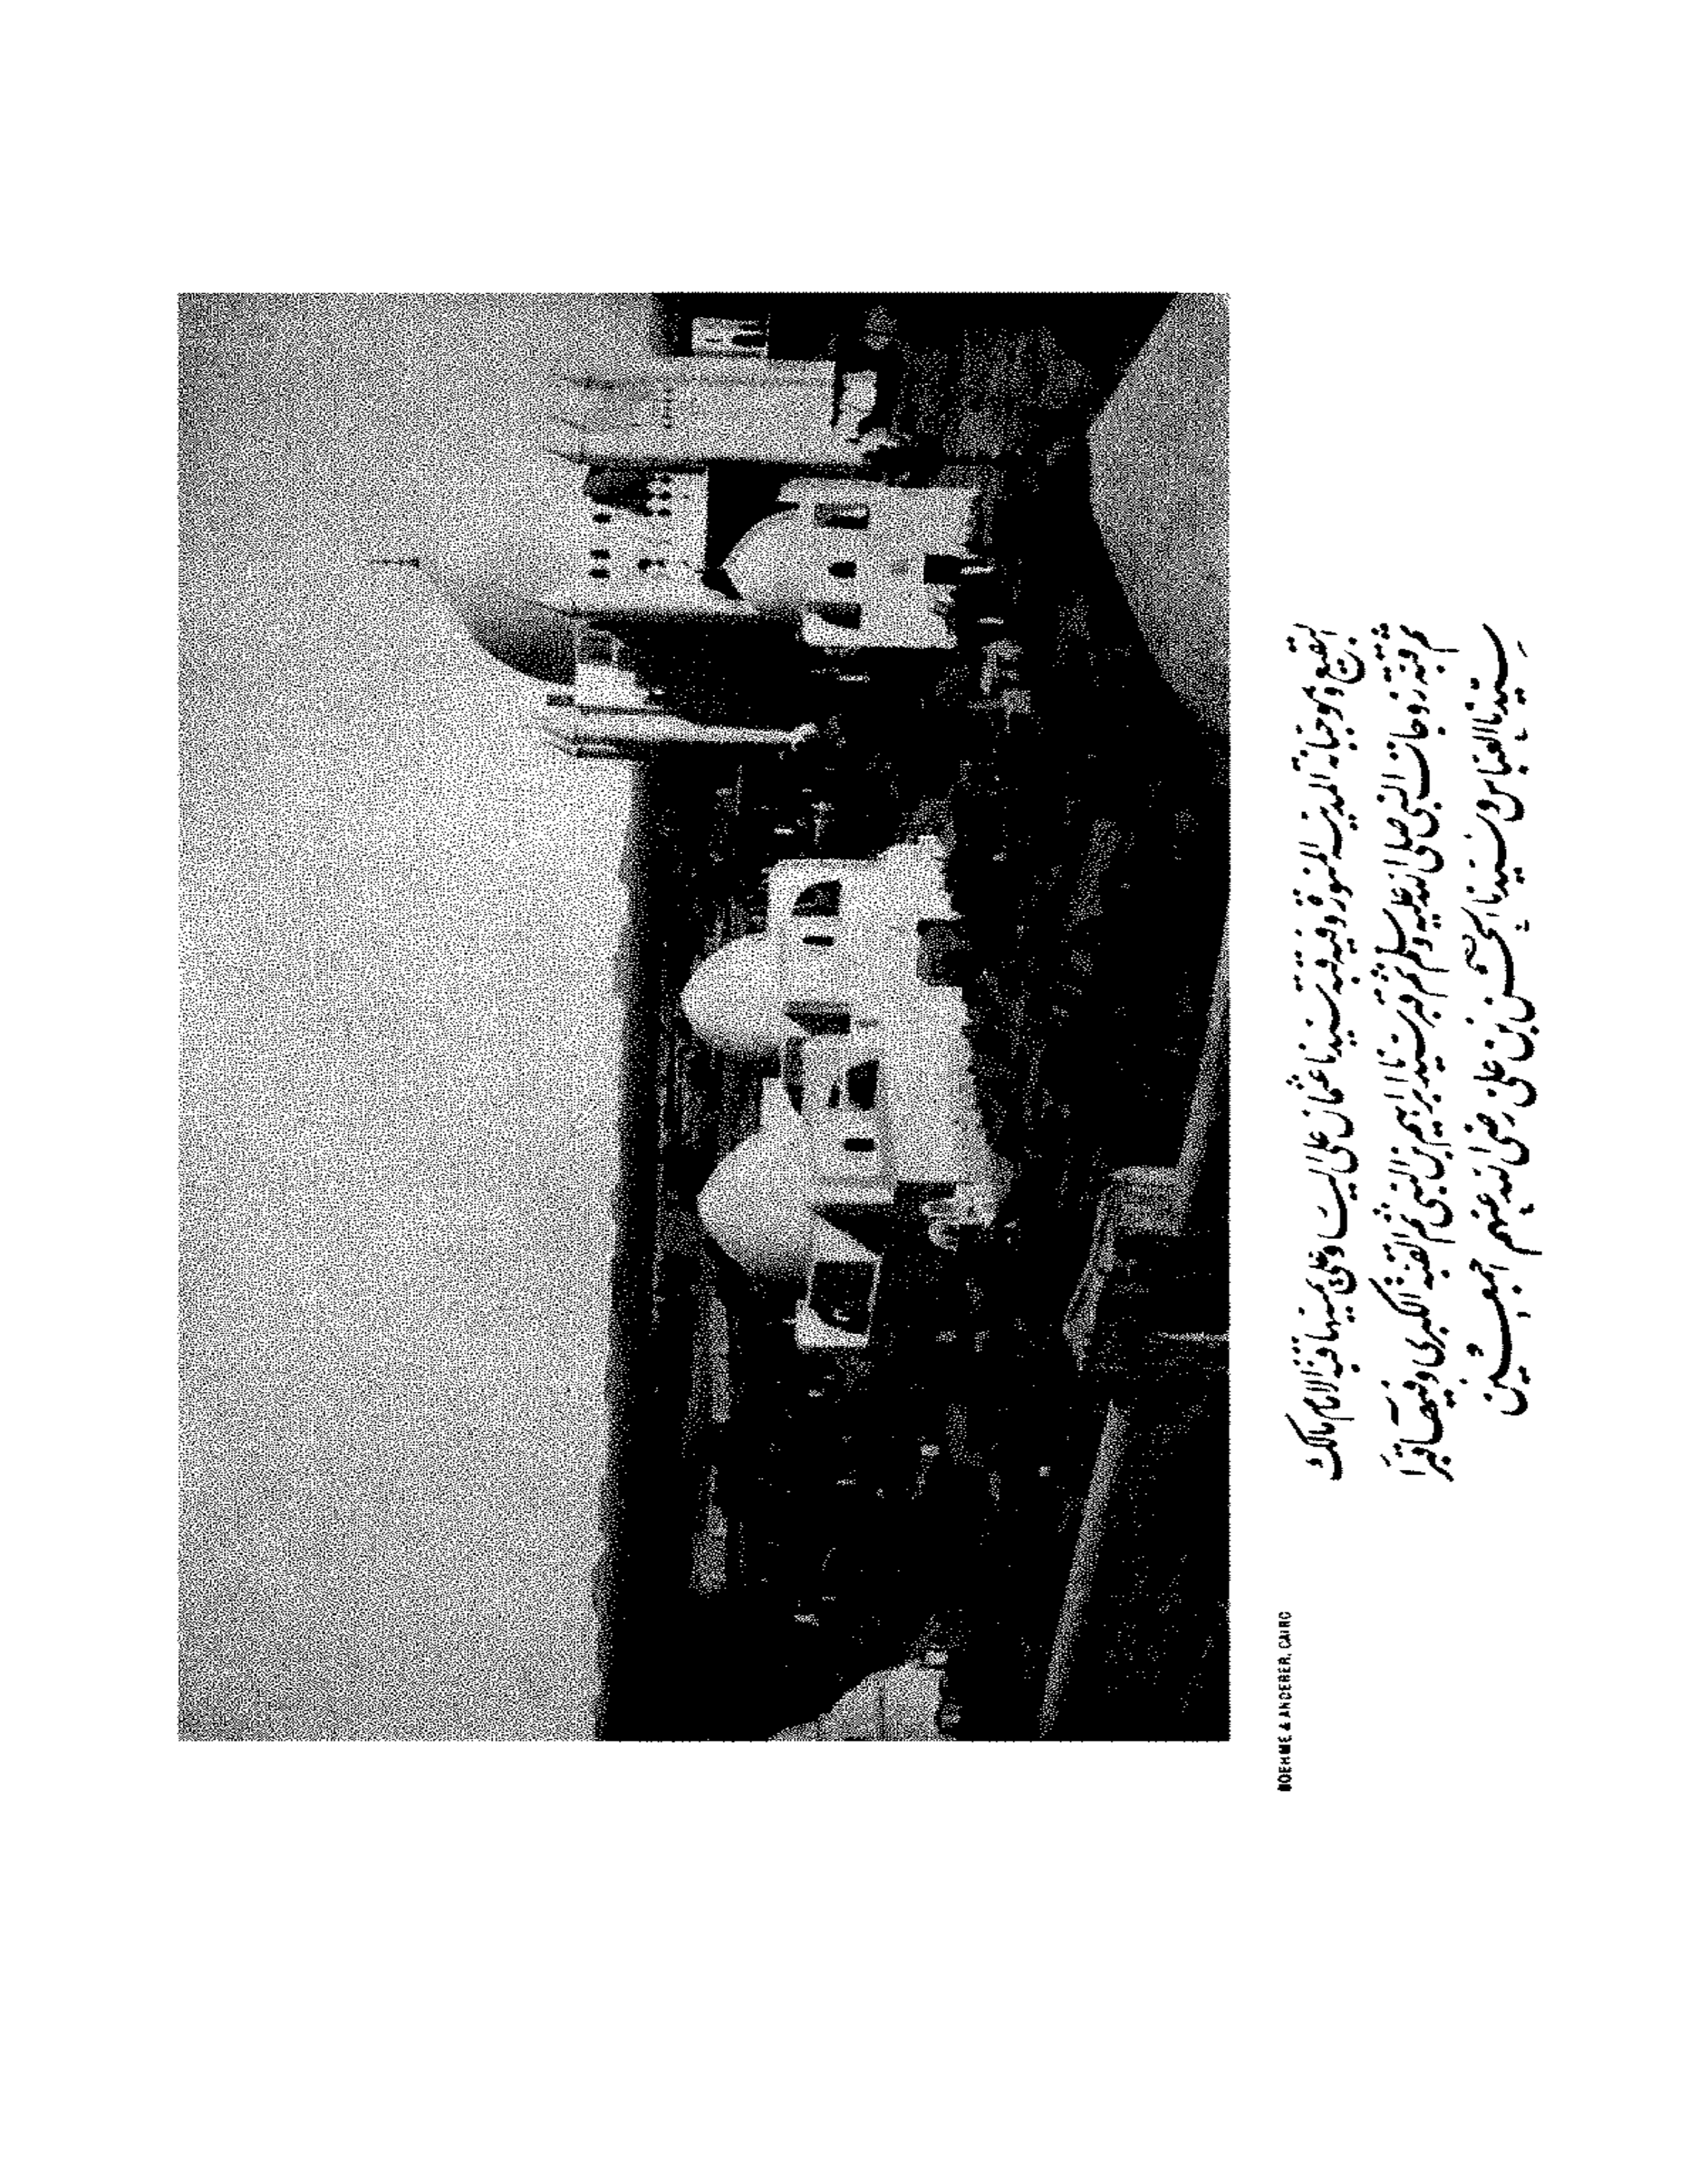 BOEHME & ANDERER, CAIRO
البقيع وهو جبانة المدينة المنورة وفيه قبة سيدنا عثمان على البيت وعلى يمينها قبة الامام مالك
ثم قبة زوجات النبي صلى الله عليه وسلم ثم قبر سيدنا ابراهيم بن النبي ثم القبة الكبرى وفيها قبرا
سيدنا العباس وسيدنا الحسن بن علي رضي الله عنهم اجمعين